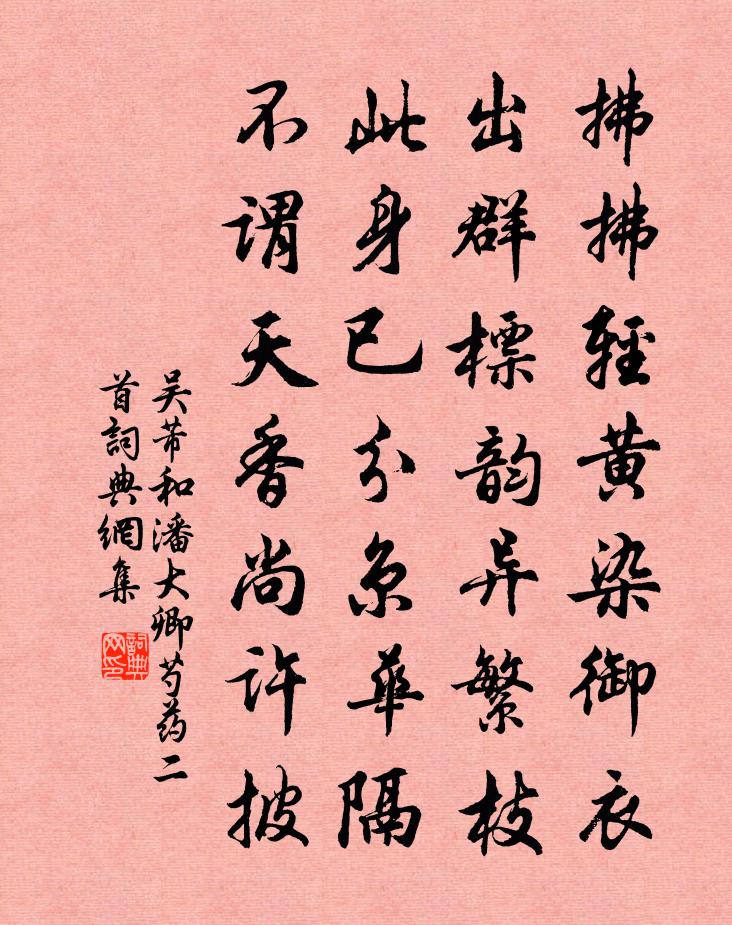 拂拂輕黄染御衣
出群標韵异繁枝
此身已分京華隔
不谓天香尚许披
吴芾和潘大卿芍药二
首詞典網集
詞典网印